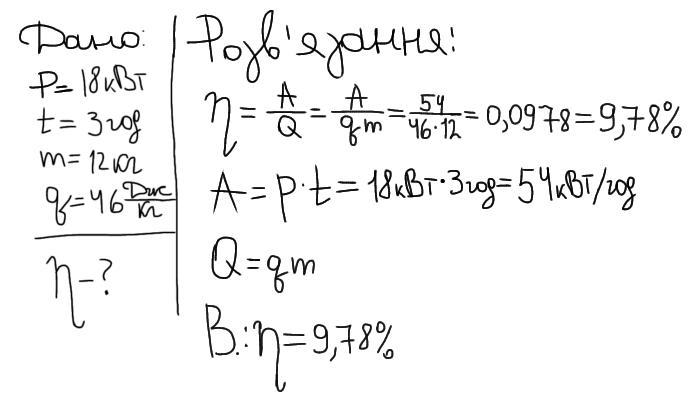 Дано:
P=18кВт
t=3год
m=12кг
q=46 Дж/кг
η-?
Розв'язання:
η = A/Q = A/qm = 54/46·12 = 0,0978 = 9,78%
A = P·t = 18кВт·3год = 54кВт/год
Q = qm
В.: η = 9,78%